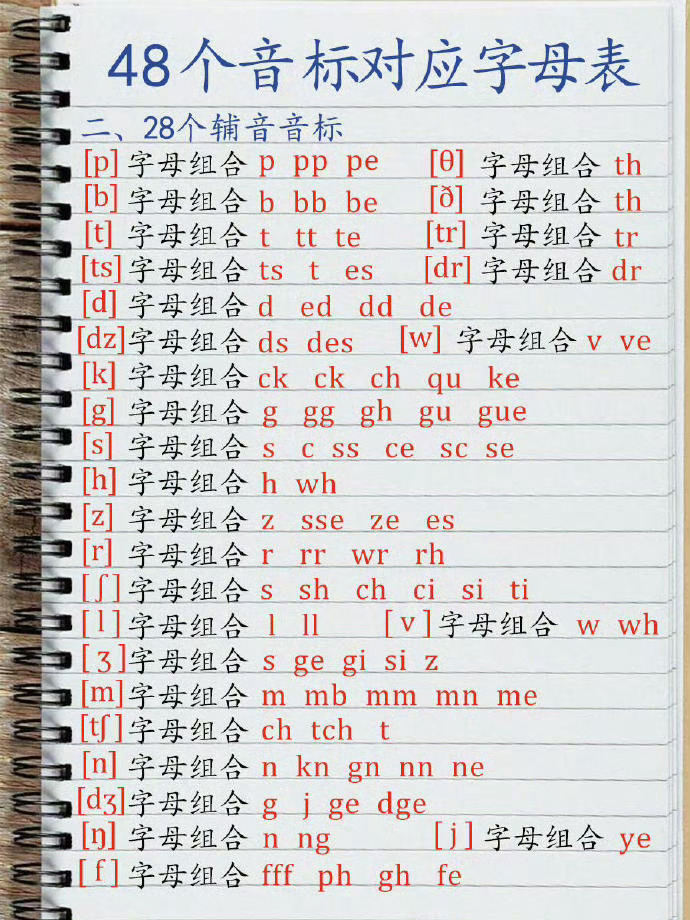 48个音标对应字母表
二、28个辅音音标
[p] 字母组合 p pp pe [θ] 字母组合 th
[b] 字母组合 b bb be [ð] 字母组合 th
[t] 字母组合 t tt te [tr] 字母组合 tr
[ts] 字母组合 ts t es [dr] 字母组合 dr
[d] 字母组合 d ed dd de
[dz] 字母组合 ds des [w] 字母组合 v ve
[k] 字母组合 ck ck ch qu ke
[g] 字母组合 g gg gh gu gue
[s] 字母组合 s c ss ce sc se
[h] 字母组合 h wh
[z] 字母组合 z sse ze es
[r] 字母组合 r rr wr rh
[ʃ] 字母组合 s sh ch ci si ti
[l] 字母组合 l ll [v] 字母组合 w wh
[ʒ] 字母组合 s ge gi si z
[m] 字母组合 m mb mm mn me
[tʃ] 字母组合 ch tch t
[n] 字母组合 n kn gn nn ne
[dʒ] 字母组合 g j ge dge
[ŋ] 字母组合 n ng [j] 字母组合 ye
[f] 字母组合 fff ph gh fe